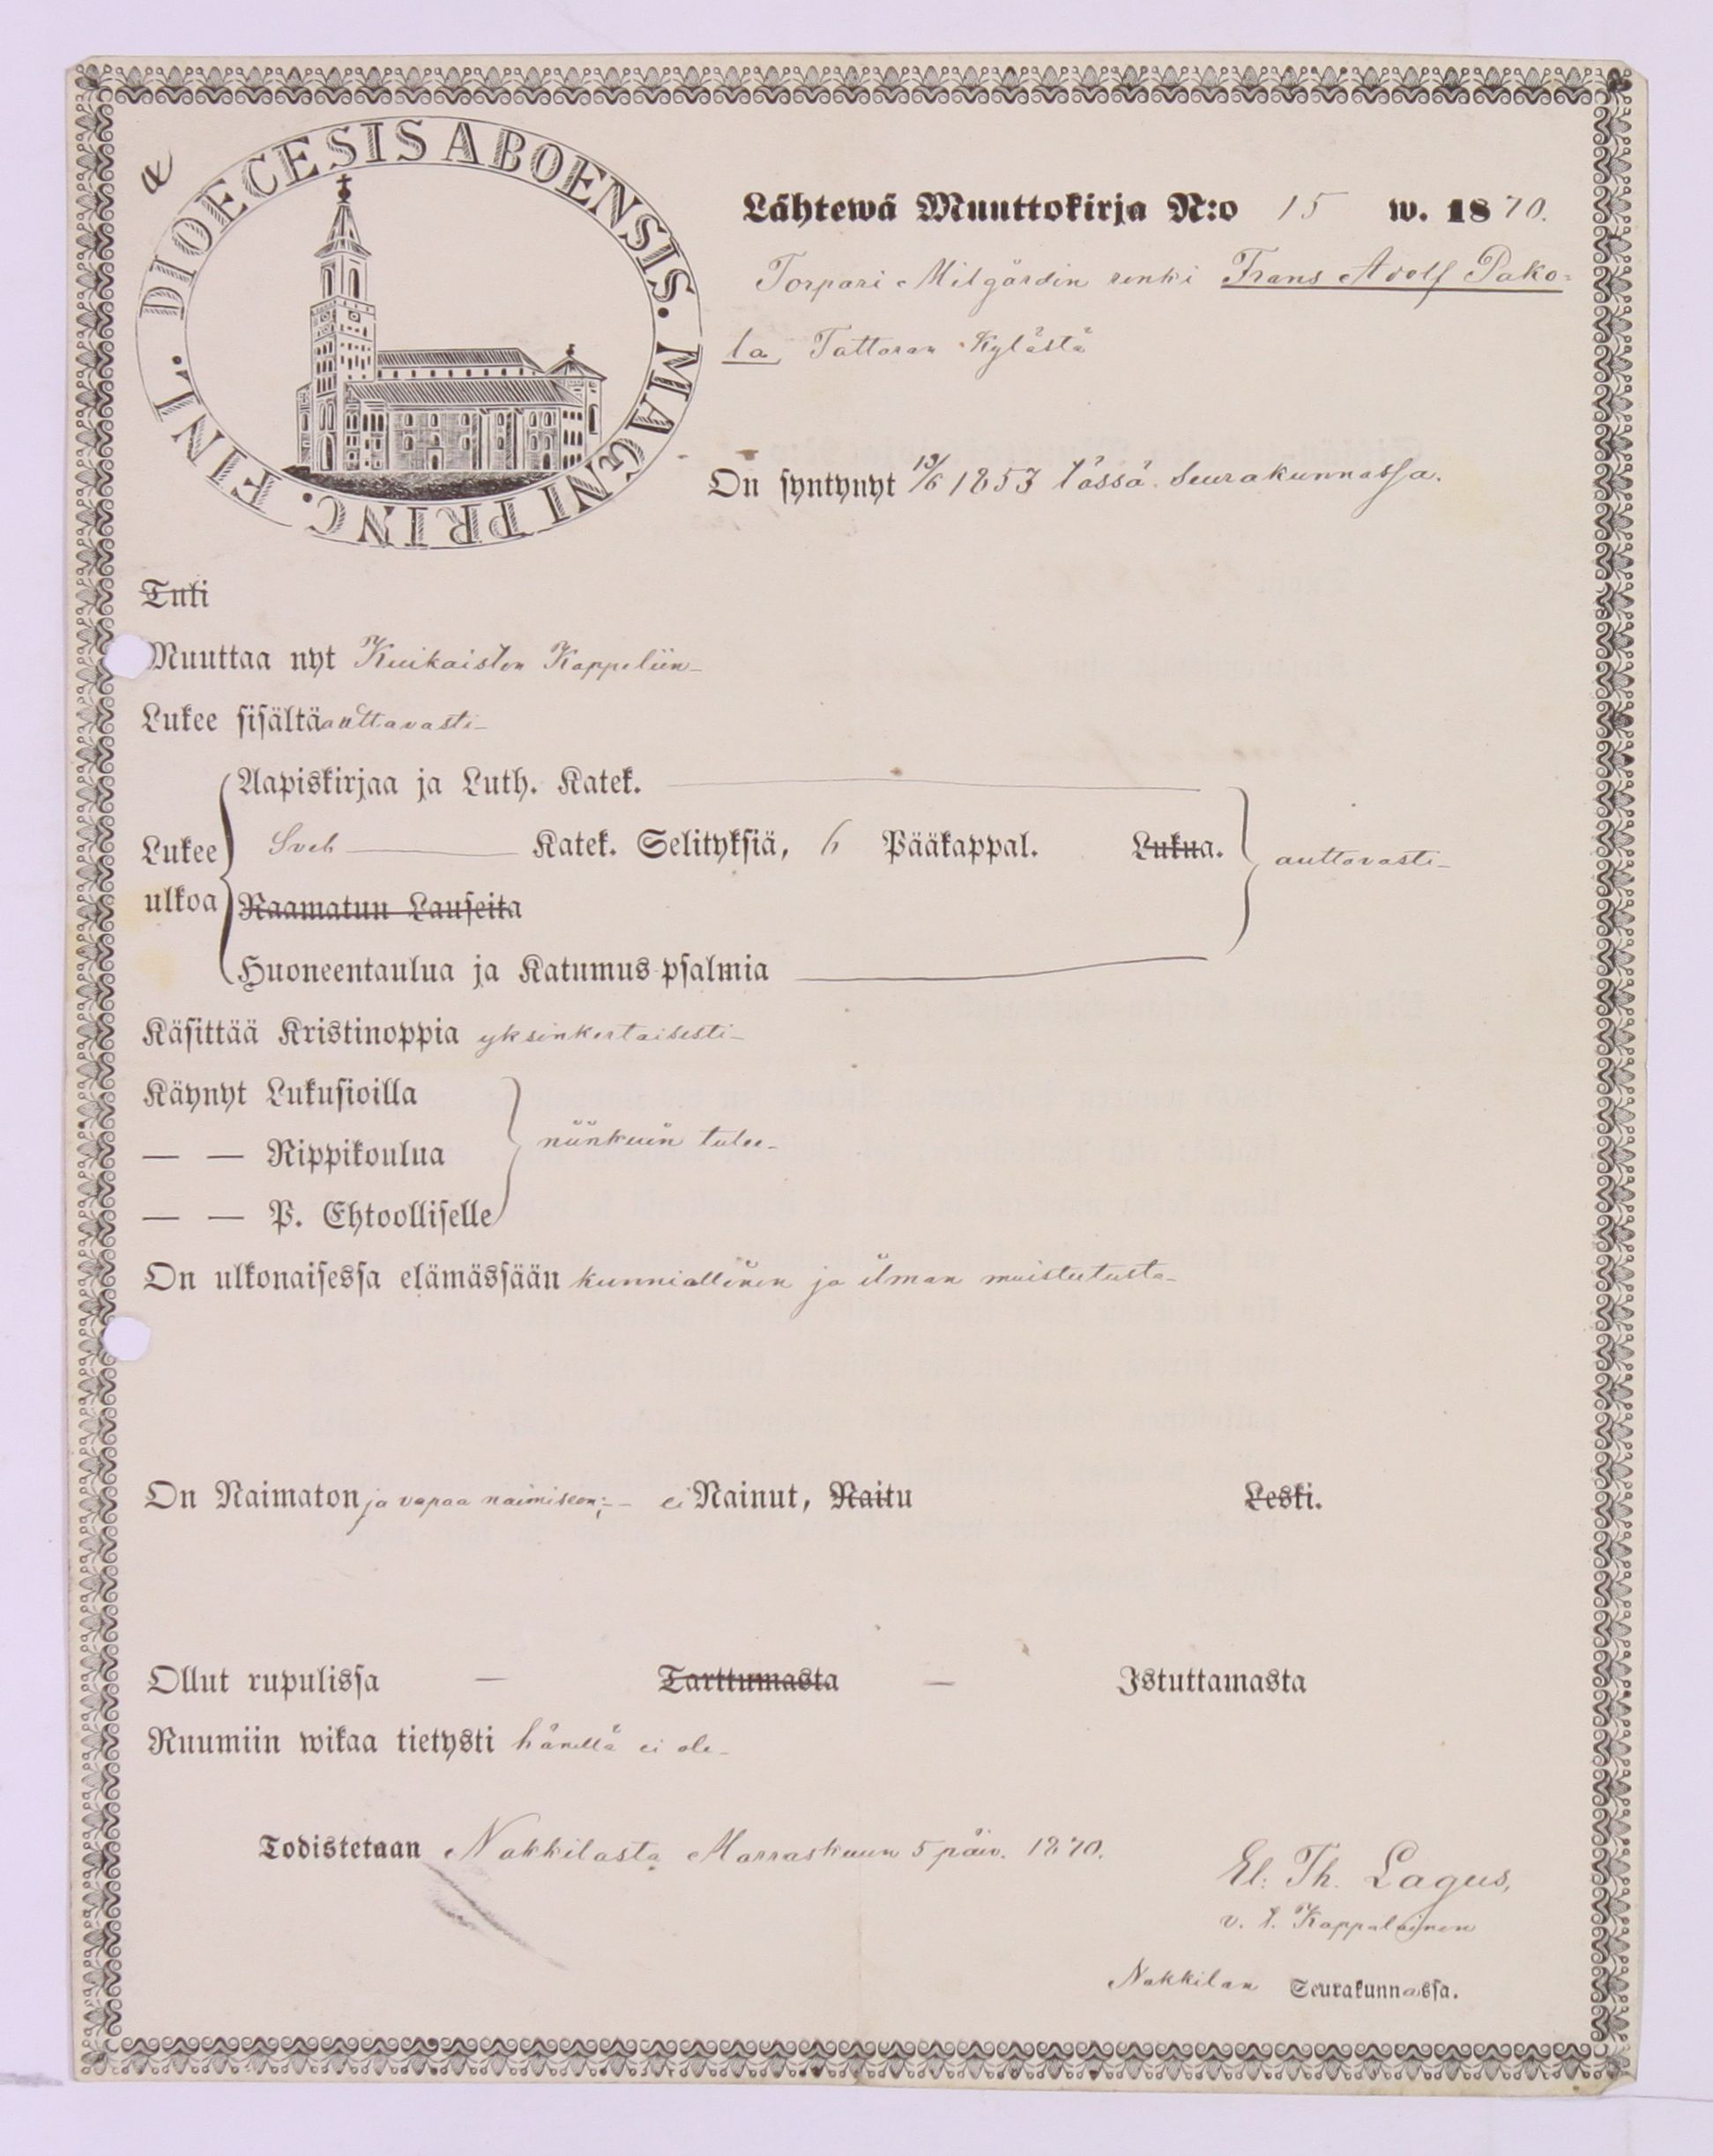 a
DIOECESIS ABOENSIS. MAGNI PRINC. FINL.
Lähtewä Muuttokirja N:o 15 w. 1870.
Torpari Milgårdin renki Frans Adolf Pako=
la Tattaran Kylästä
On syntynyt 19/6 1853 tässä Seurakunnassa.
Tuli
Muuttaa nyt Kiukaisten Kappeliin
Lukee sisältä auttavasti
Aapiskirjaa ja Luth. Katek.
Lukee ulkoa Sveb Katek. Selityksiä, 6 Pääkappal. Lukua. auttavasti
Raamatun Lauseita
Huoneentaulua ja Katumus-psalmia
Käsittää Kristinoppia yksinkertaisesti
Käynyt Lukusioilla
— — Rippikoulua niinkuin tulee
— — P. Ehtoolliselle
On ulkonaisessa elämässään kunniallinen ja ilman muistutusta
On Naimaton ja vapaa naimiseen; ei Nainut, Naitu Leski.
Ollut rupulissa — Tarttumasta — Istuttamasta
Ruumiin wikaa tietysti hänellä ei ole
Todistetaan Nakkilasta Marraskuun 5 päiv. 1870.
El. Th. Lagus,
v. t. Kappalainen
Nakkilan Seurakunnassa.